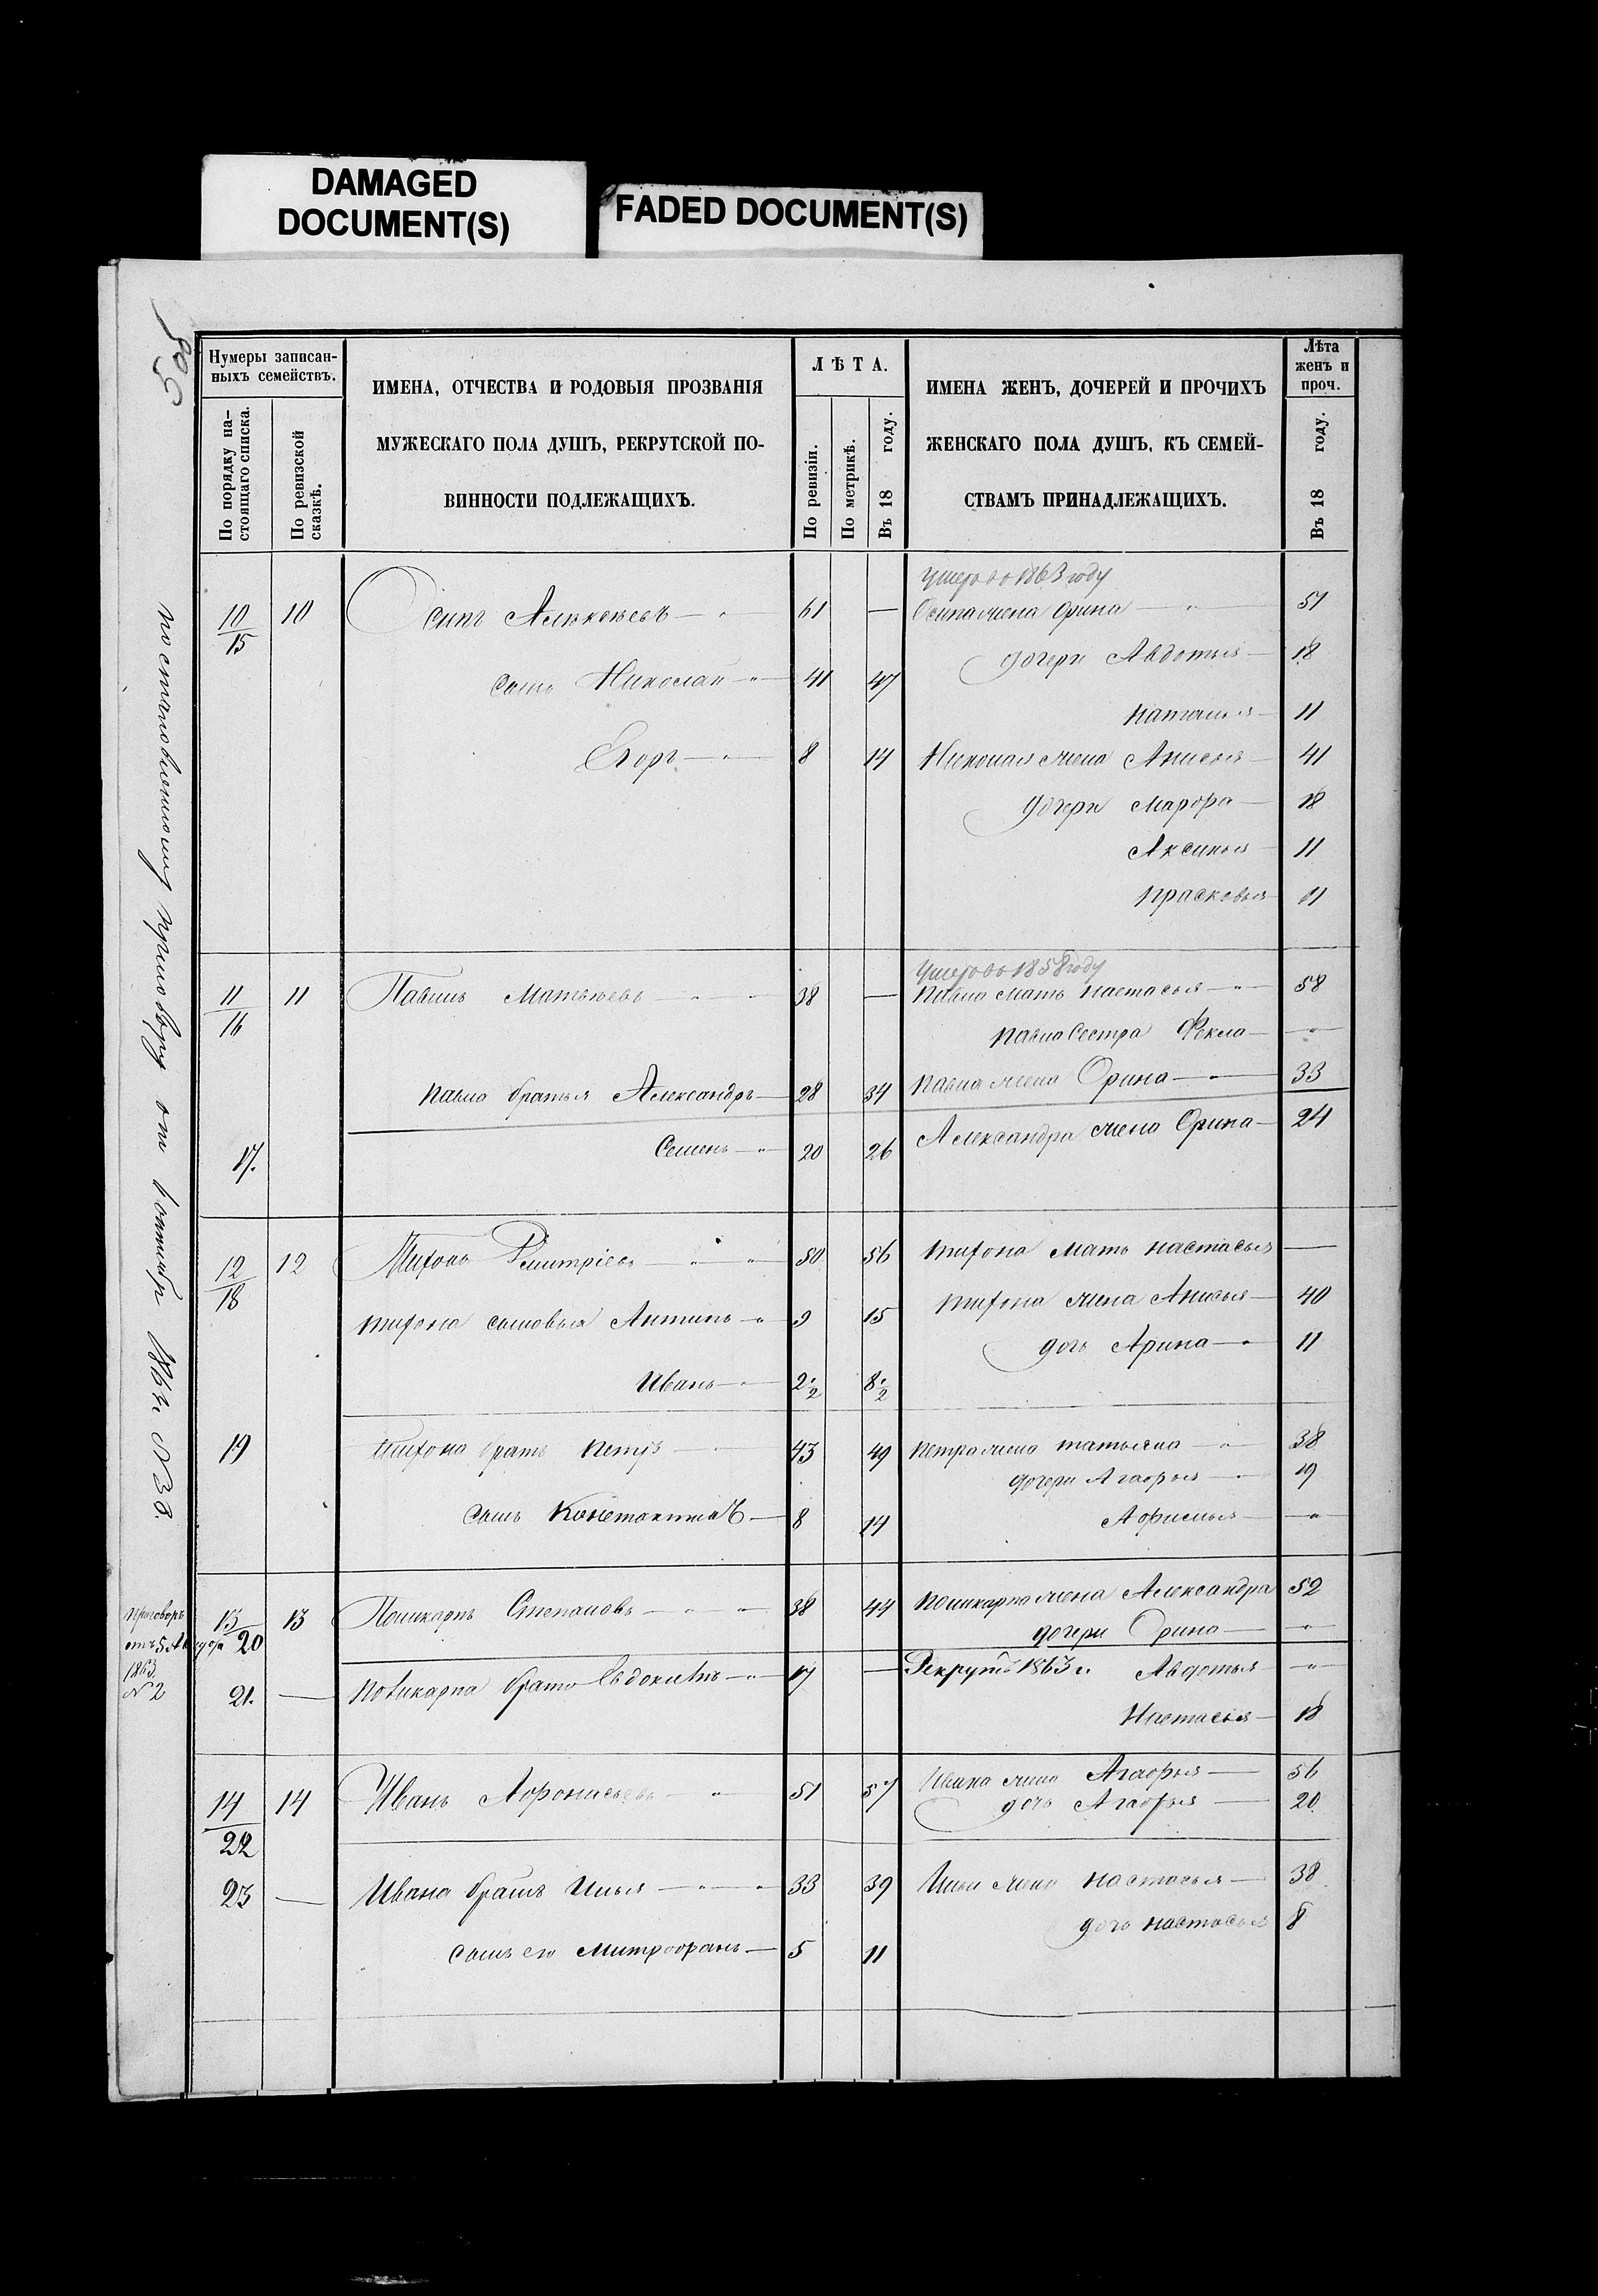 DAMAGED
DOCUMENT(S)
FADED DOCUMENT(S)
Нумеры записан-
ныхъ семействъ.
По порядку на-
стоящаго списка.
По ревизской
сказкѣ.
ИМЕНА, ОТЧЕСТВА И РОДОВЫЯ ПРОЗВАНІЯ
МУЖЕСКАГО ПОЛА ДУШЪ, РЕКРУТСКОЙ ПО-
ВИННОСТИ ПОДЛЕЖАЩИХЪ.
ЛѢТА.
По ревизіи.
По метрикѣ.
Въ 18 году.
ИМЕНА ЖЕНЪ, ДОЧЕРЕЙ И ПРОЧИХЪ
ЖЕНСКАГО ПОЛА ДУШЪ, КЪ СЕМЕЙ-
СТВАМЪ ПРИНАДЛЕЖАЩИХЪ.
Лѣта
женъ и
проч.
Въ 18 году.
1863 году
10/15 10 Осипъ Алексѣевъ 61 — Осипа жена Орина 51
дочери Авдотья 18
сынъ Николай 41 47
Наталья 11
Егоръ 8 14 Николая жена Анисья 41
дочери Марфа 18
Аксинья 11
Прасковья 11
1858 году
11/16 11 Павелъ Матвѣевъ 38 — Павла мать Настасья 58
Павла сестра Фекла —
Павла братья Александръ 28 34 Павла жена Орина 33
17. Семенъ 20 26 Александра жена Орина 24
12/18 12 Тихонъ Дмитріевъ 50 56 Тихона мать Настасья —
Тихона сыновья Антипъ 9 15 Тихона жена Анисья 40
дочь Арина 11
Иванъ 2½ 8½
19 Тихона братъ Петръ 43 49 Петра жена Татьяна 38
дочери Агафья 19
сынъ Константинъ 8 14 Афимья —
13/20 13 Поликарпъ Степановъ 38 44 Поликарпа жена Александра 52
дочери Орина —
21. — Поликарпа братъ Евдокимъ 17 — Рекрутъ 1863 г. Авдотья —
Настасья 18
14/22 14 Иванъ Афонасьевъ 51 57 Ивана жена Агафья 56
дочь Агафья 20
23 — Ивана братъ Илья 33 39 Ильи жена Настасья 38
дочь Настасья 8
сынъ его Митрофанъ 5 11
приговоръ
1863
№ 2